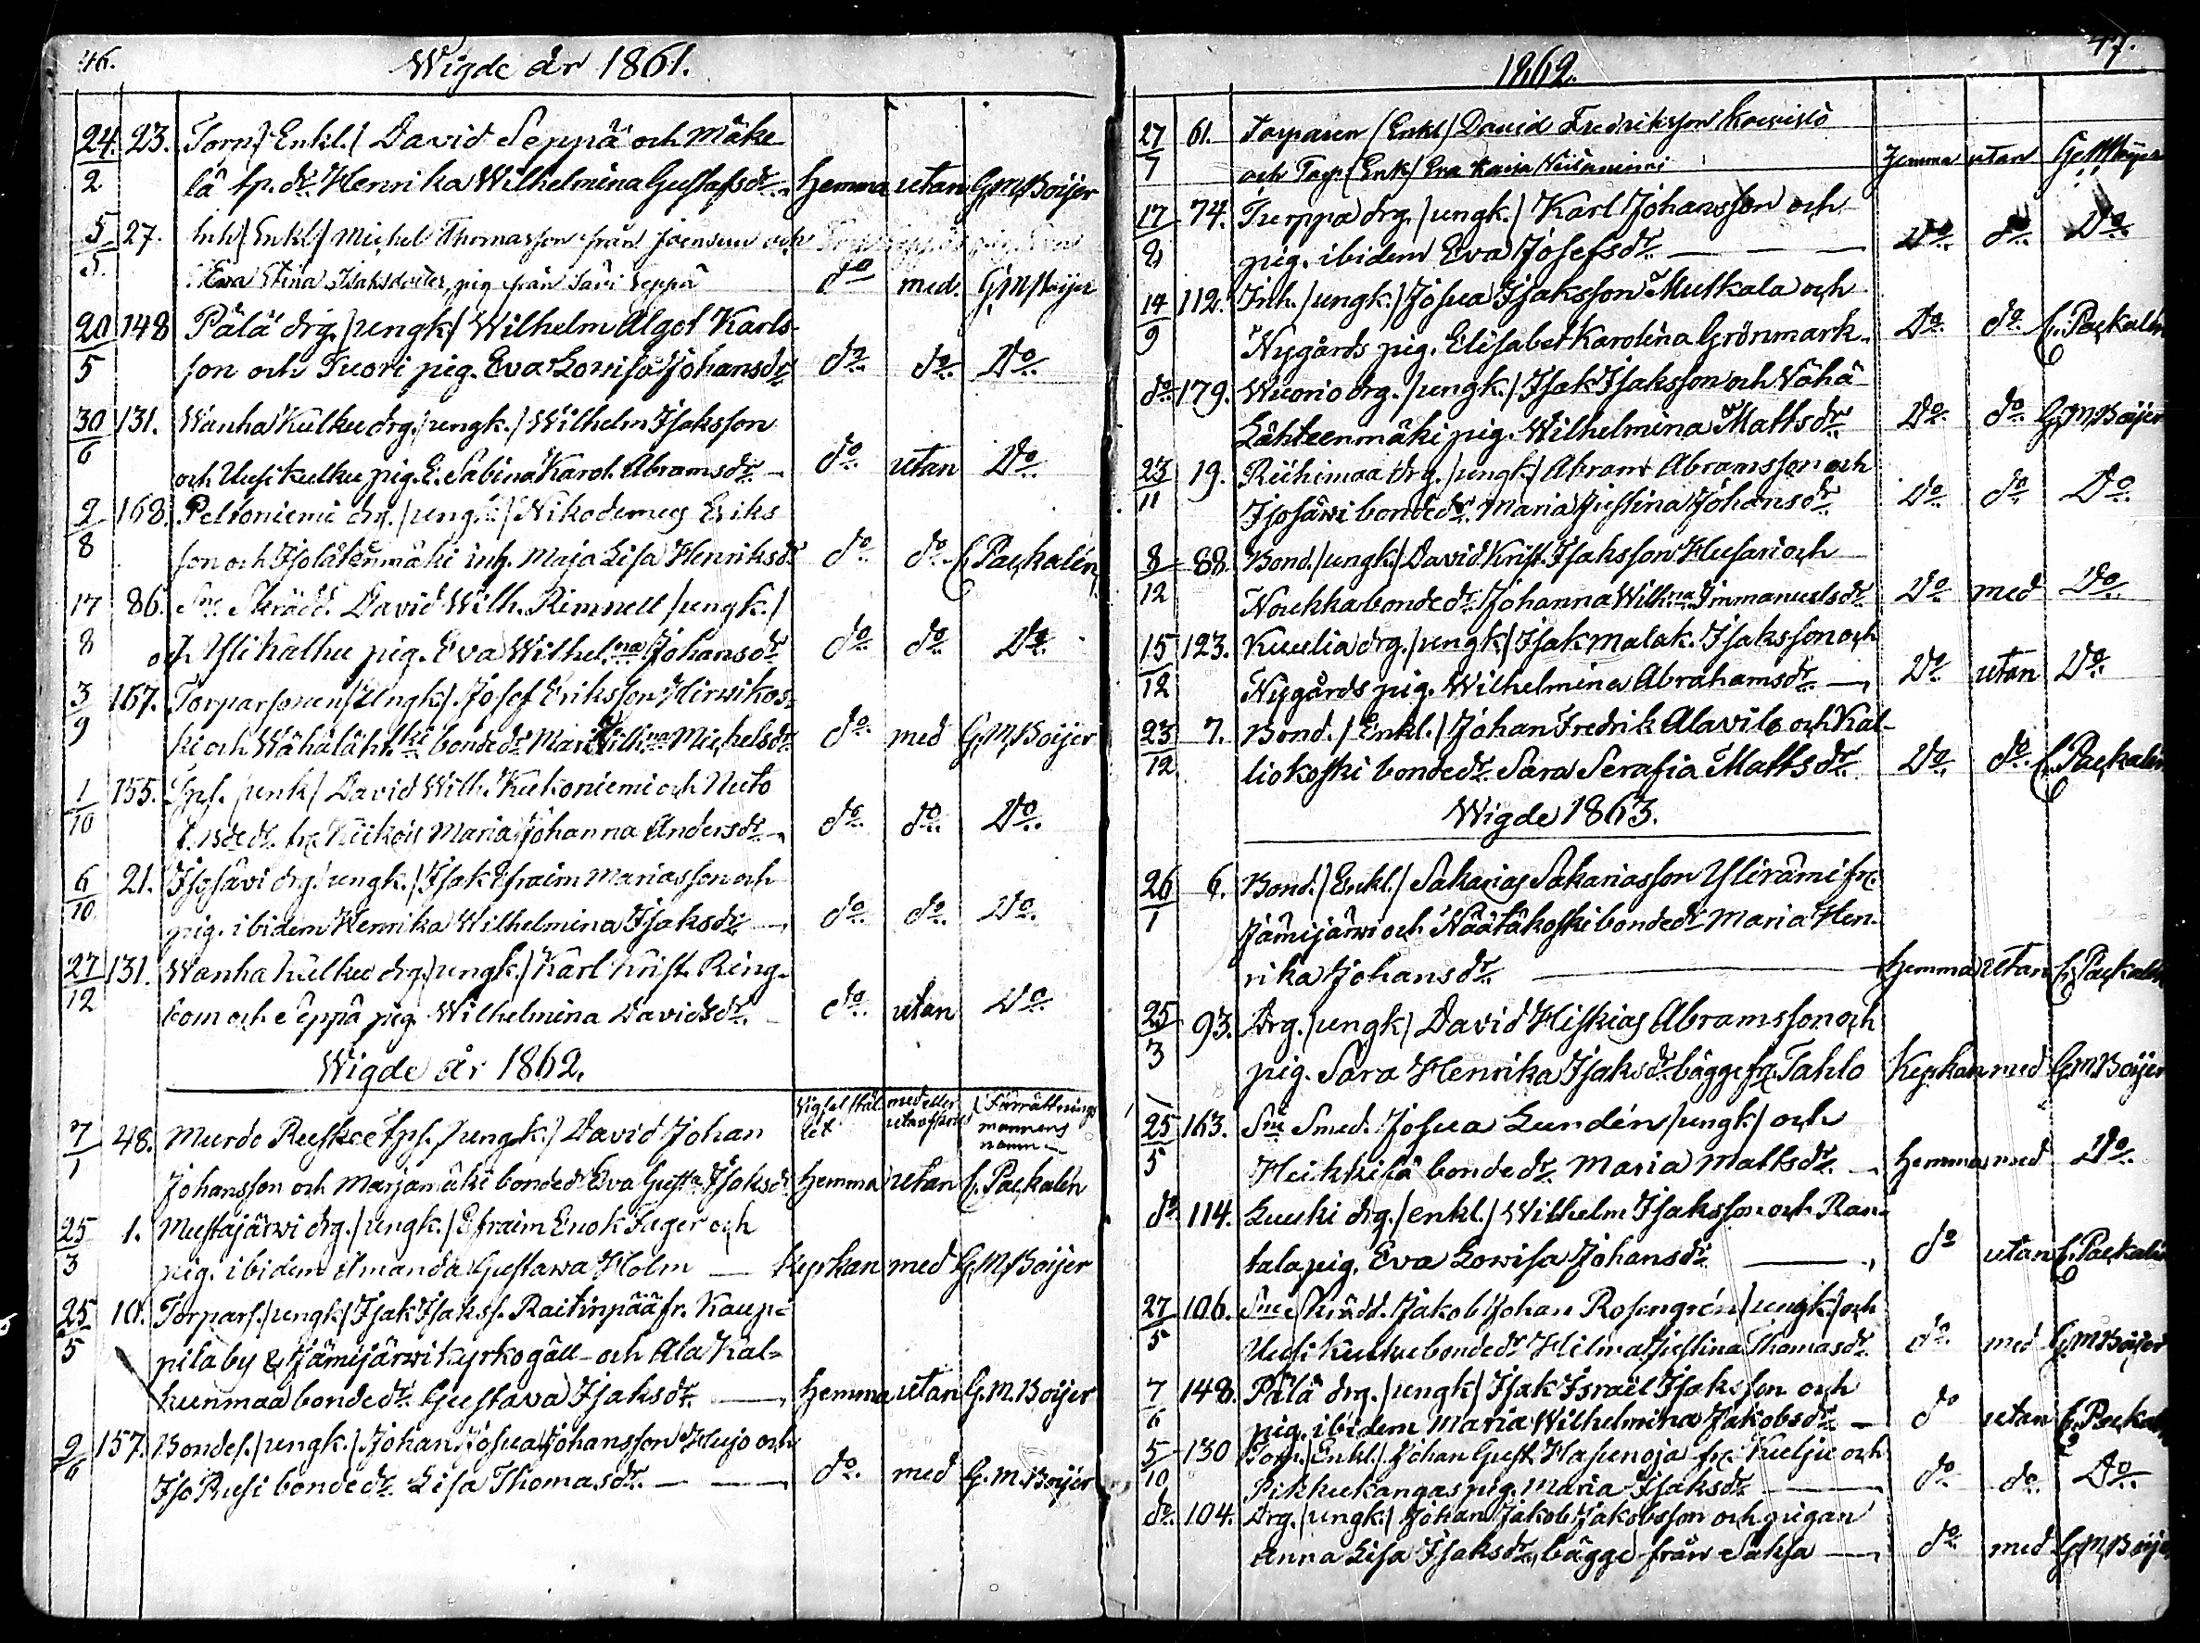 46.
Wigde år 1861.
24. 23. Torp. /Enkl./ David Seppä och Mäke
2 lä tp. dr. Henrika Wilhelmina Gustafsdr. hemma utan G.M. Boijer
5 27. Inh. /Enkl/ Michel Thomasson från Joensuu och
5. Eva Stina Isaksdotter, pig från Savi Seppä do med. G.M. Boijer
20 148 Pälä drg. /ungk/ Wilhelm Algot Karls-
5 son och Tuori pig. Eva Lovisa Johansdr. do. do. Do.
30 131. Wanha Kulku drg. /ungk./ Wilhelm Isaksson
6 och Uusi kulku pig. E. Sabina Karol. Abramsdr. do. utan Do.
2 168. Peltoniemi drg. /ungk/ Nikodemus Eriks
8 son och Isolätenmäki inh. Maja Lisa Henriksdr. do. do. C. Packalén
17 86. Sne Skrädd. David Wilh. Rimnell /ungk./
8 och Yli Kalku pig. Eva Wilhelna Johansdr do. do. Do.
3 167. Torparsonen /Ungk/. Josef Eriksson Hirwikos-
9 ki och Wähälähtki bondedr Mari Wilhna Michelsdr do. med G.M. Boijer
1 155. Tps. /unk/ David Wilh. Kukoniemi och
10 Maria Johanna Andersdr. do. do. Do.
6 21. Isosävi drg. /ungk./ Isak Efraim Mariasson och
10 pig. ibidem Henrika Wilhelmina Isaksdr. do. do. Do.
27 131. Wanha kulku drg. /ungk./ Karl Krist. Ring-
12 bom och Seppä pig. Wilhelmina Davidsdr. do. utan Do.
Wigde år 1862.
Vigsel stäl- med eller Förrättnings
let mannens
namn
7 48. Murdo Ruskee Tps. /ungk./ David Johan
1 Johansson och Marjamäki bondedr Eva Gustfa Isaksdr hemma utan C. Packalén
25 1. Mustajärwi drg. /ungk./ Efraim Enok Fager och
3 pig. ibidem Amanda Gustawa Holm — Kyrkan med G.M. Boijer
25 10. Torpars. /ungk/ Isak Isakss. Raitinpää fr. Kaup-
5 pila by & Jämijärwi kyrkogäll- och Ala Kal-
kunmaa bondedr. Gustava Isaksdr. — hemma utan G.M. Boijer
9 157. Bondes. /ungk./ Johan Josua Johansson Hujo och
6 Iso Rusi bondedr. Lisa Thomasdr. — — do. med G.M. Boijer
47.
1862.
27 61. Torparen /Enkl/ David Fredriksson Koivisto
7 och Torp. /Enk/ Eva Kaisa hemma utan G.M. Boijer
17 74. Turppa drg. /ungk./ Karl Johansson och
8 pig. ibidem Eva Josefsdr. — — Do. do. Do.
14 112. Inh. /ungk./ Josua Isaksson Mutkala och
9 Nygårds pig. Elisabet Karolina Grönmark. Do. do. C. Packalén
do. 179. Wuorio drg. /ungk./ Isak Isaksson och Vähä
Lähteenmäki pig. Wilhelmina Mattsdr. Do. do. G.M. Boijer
23 19. Riihimaa drg. /ungk/ Abram Abramsson och
11 Isosäwi bondedr. Maria Justina Johansdr Do. do. Do.
8 88. Bond. /ungk/ David Krist. Isaksson Husari och
12 Noukka bondedr. Johanna Wilhna Immanuelsdr. Do. med Do.
15 123. Kuulia drg. /ungk/ Isak Malak. Isaksson och
12 Nygårds pig. Wilhelmina Abrahamsdr. — Do. utan Do.
23 7. Bond. /Enkl./ Johan Fredrik Alavilo och Kal-
12 liokoski bondedr. Sara Serafia Mattsdr. Do. do. C. Packalén
Wigde 1863.
26 6. Bond. /Enkl./ Sakarias Sakariasson Ylirämi fr.
1 Jämijärwi och Näätäkoski bondedr Maria Hen-
rika Johansdr. — hemma utan C. Packalén
25 93. Drg. /ungk/ David Hiskias Abramsson och
3 pig. Sara Henrika Isaksdr. bägge fr. Tahlo Kyrkan med G.M. Boijer
25 163. Sne Smed. Josua Lundén /ungk/ och
5 Heikkilä bondedr. Maria Mattsdr. — hemma med Do.
do 114. Luuki drg. /enkl./ Wilhelm Isaksson och Ran-
tala pig. Eva Lovisa Johansdr. — do utan C. Packalén
27 106. Sne Skrädd. Jakob Johan Rosengrén /ungk/ och
5 Uusi kulku bondedr Hilma Justina Thomasdr. do. med G.M. Boijer
7 148. Pälä drg. /ungk/ Isak Israël Isaksson och
6 pig. ibidem Maria Wilhelmina Jakobsdr. — do utan C. Packalén
5 130 Torp. /Enkl./ Johan Gust. Hasunoja fr. Kulju och
10 Pikkukangas pig. Maria Isaksdr. — do do. Do.
do. 104. Drg. /ungk./ Johan Jakob Jakobsson och pigan
Anna Lisa Isaksdr., bägge från Saksa — do. med G.M. Boijer